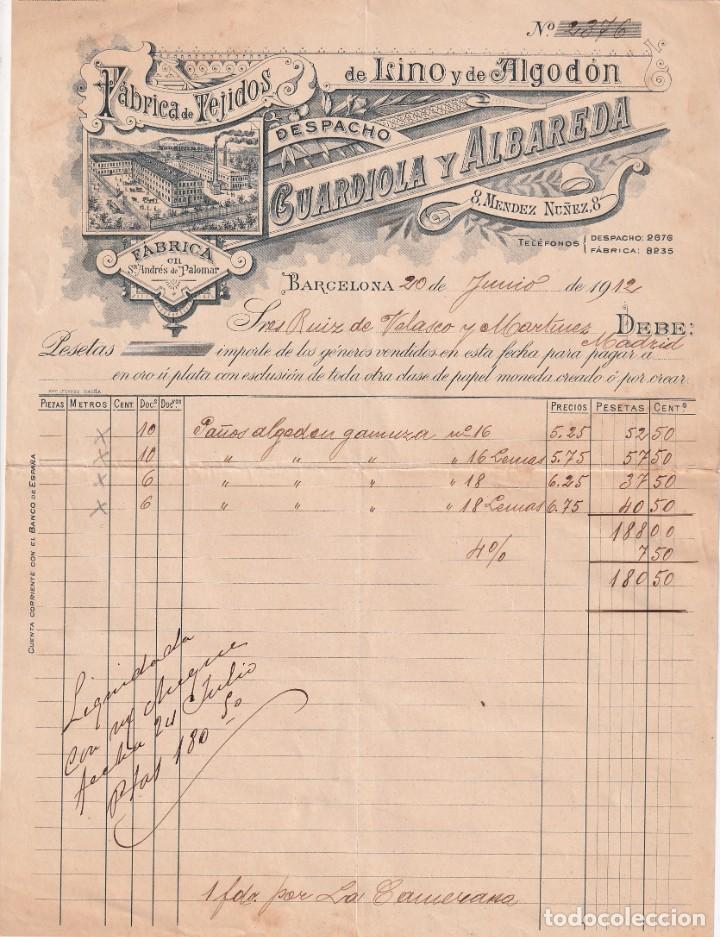 Nº 2376
Fábrica de Tejidos
de Lino y de Algodón
DESPACHO
GUARDIOLA Y ALBAREDA
8, MENDEZ NUÑEZ, 8
TELÉFONOS { DESPACHO: 2676
FÁBRICA: 8235
FÁBRICA
en
Sn Andrés de Palomar
BARCELONA 20 de Junio de 1912
Sres Ruiz de Velasco y Martinez DEBE:
Madrid
Pesetas importe de los géneros vendidos en esta fecha para pagar á
en oro ú plata con esclusión de toda otra clase de papel moneda creado ó por crear.
PIEZAS METROS CENT. Doc.s PRECIOS PESETAS CENT.s
x 10 Paños algodon gamuza nº 16 5.25 52 50
x 10 " " " " 16 Lemas 5.75 57 50
x 6 " " " " 18 6.25 37 50
x 6 " " " " 18 Lemas 6.75 40 50
188 00
4 % 7 50
180 50
CUENTA CORRIENTE CON EL BANCO DE ESPAÑA
Liquidada
con n/ cheque
fecha 24 Julio
Ptas 180 50
1 fdo. por La Camerana
todocoleccion